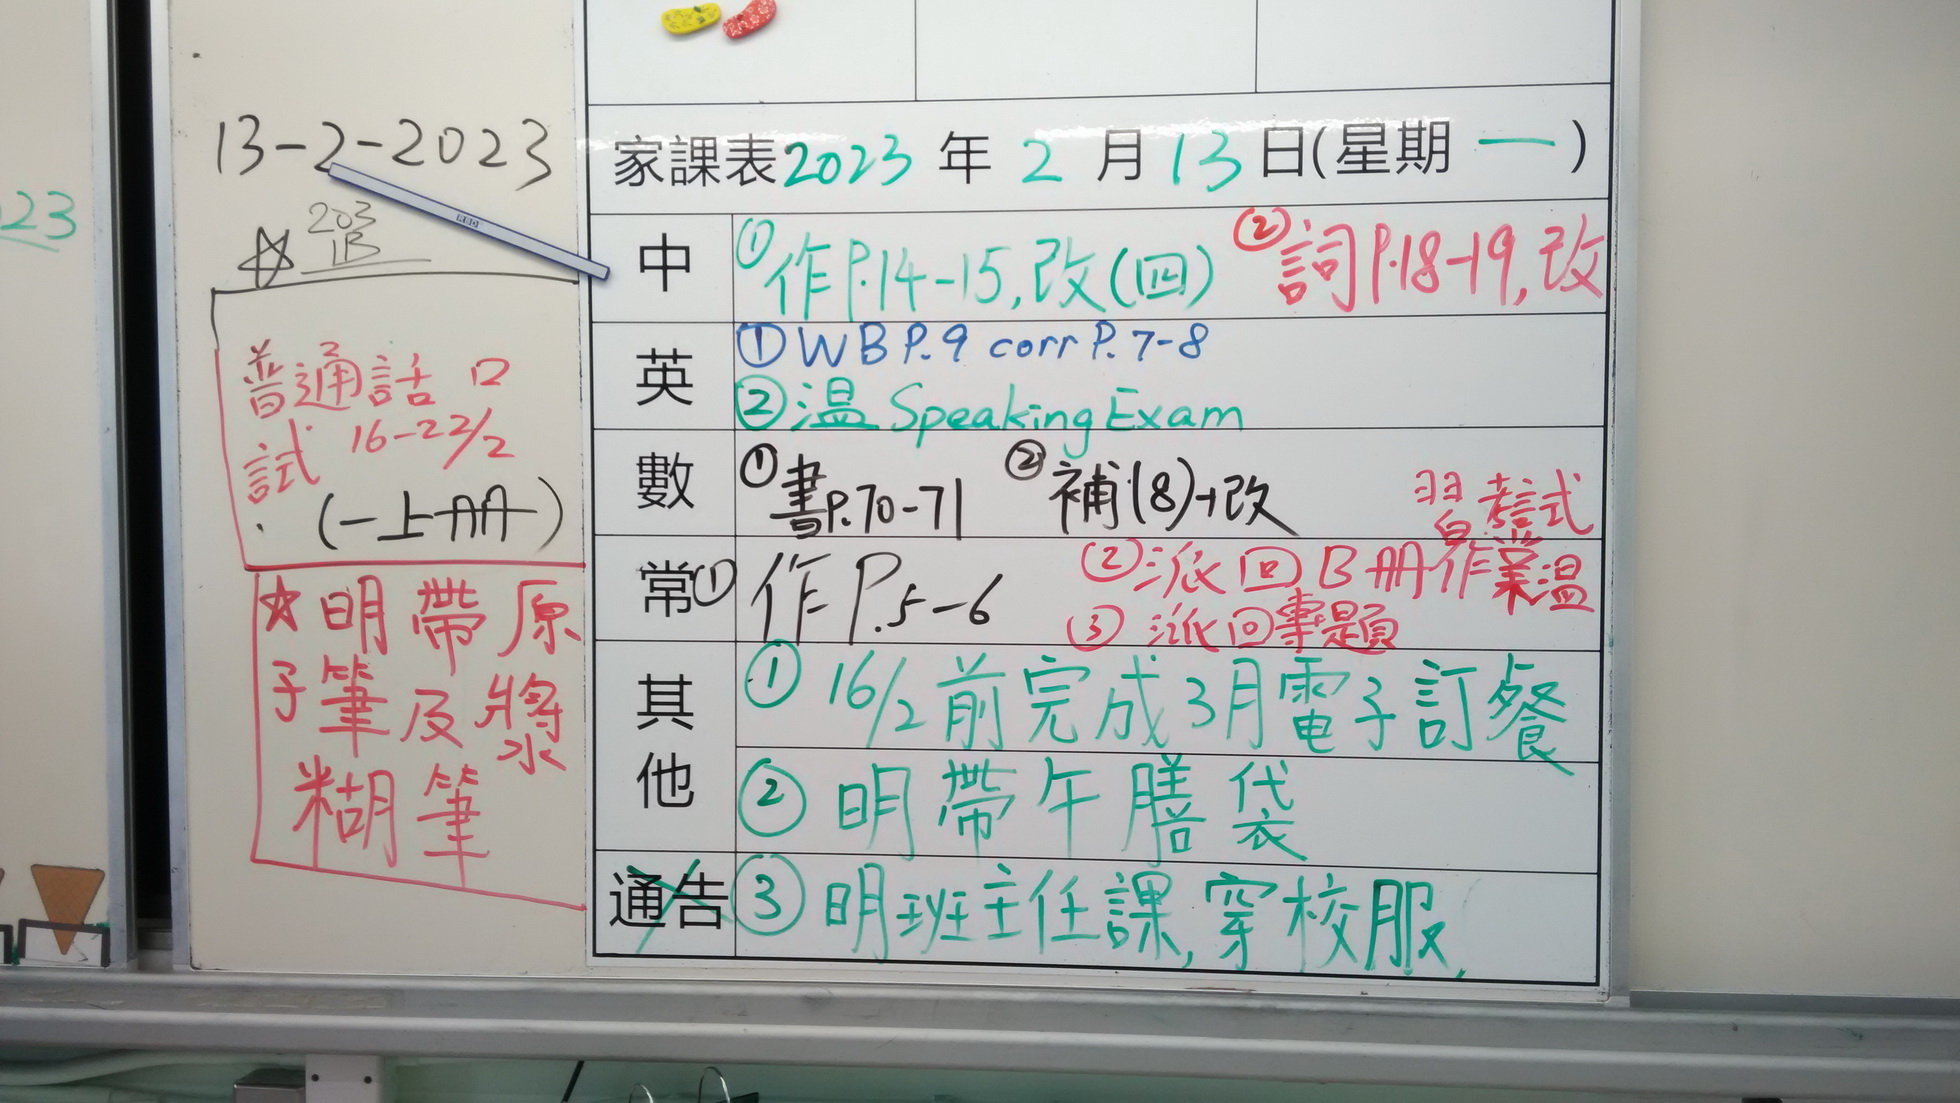 23
13-2-2023
203
1B
普通話口
試 16-22/2
(一上冊)
★明帶原
子筆及將
水
糊筆
家課表2023年2月13日(星期一)
中 ①作P.14-15,改(四) ②詞P.18-19,改
英 ①WB P.9 corr P.7-8
②溫 Speaking Exam
數 ①書P.70-71 ②補(8)+改
常 ①作P.5-6 ②派回B冊作業溫習考試
③派回專題
其他 ①16/2前完成3月電子訂餐
②明帶午膳袋
通告 ③明班主任課,穿校服,